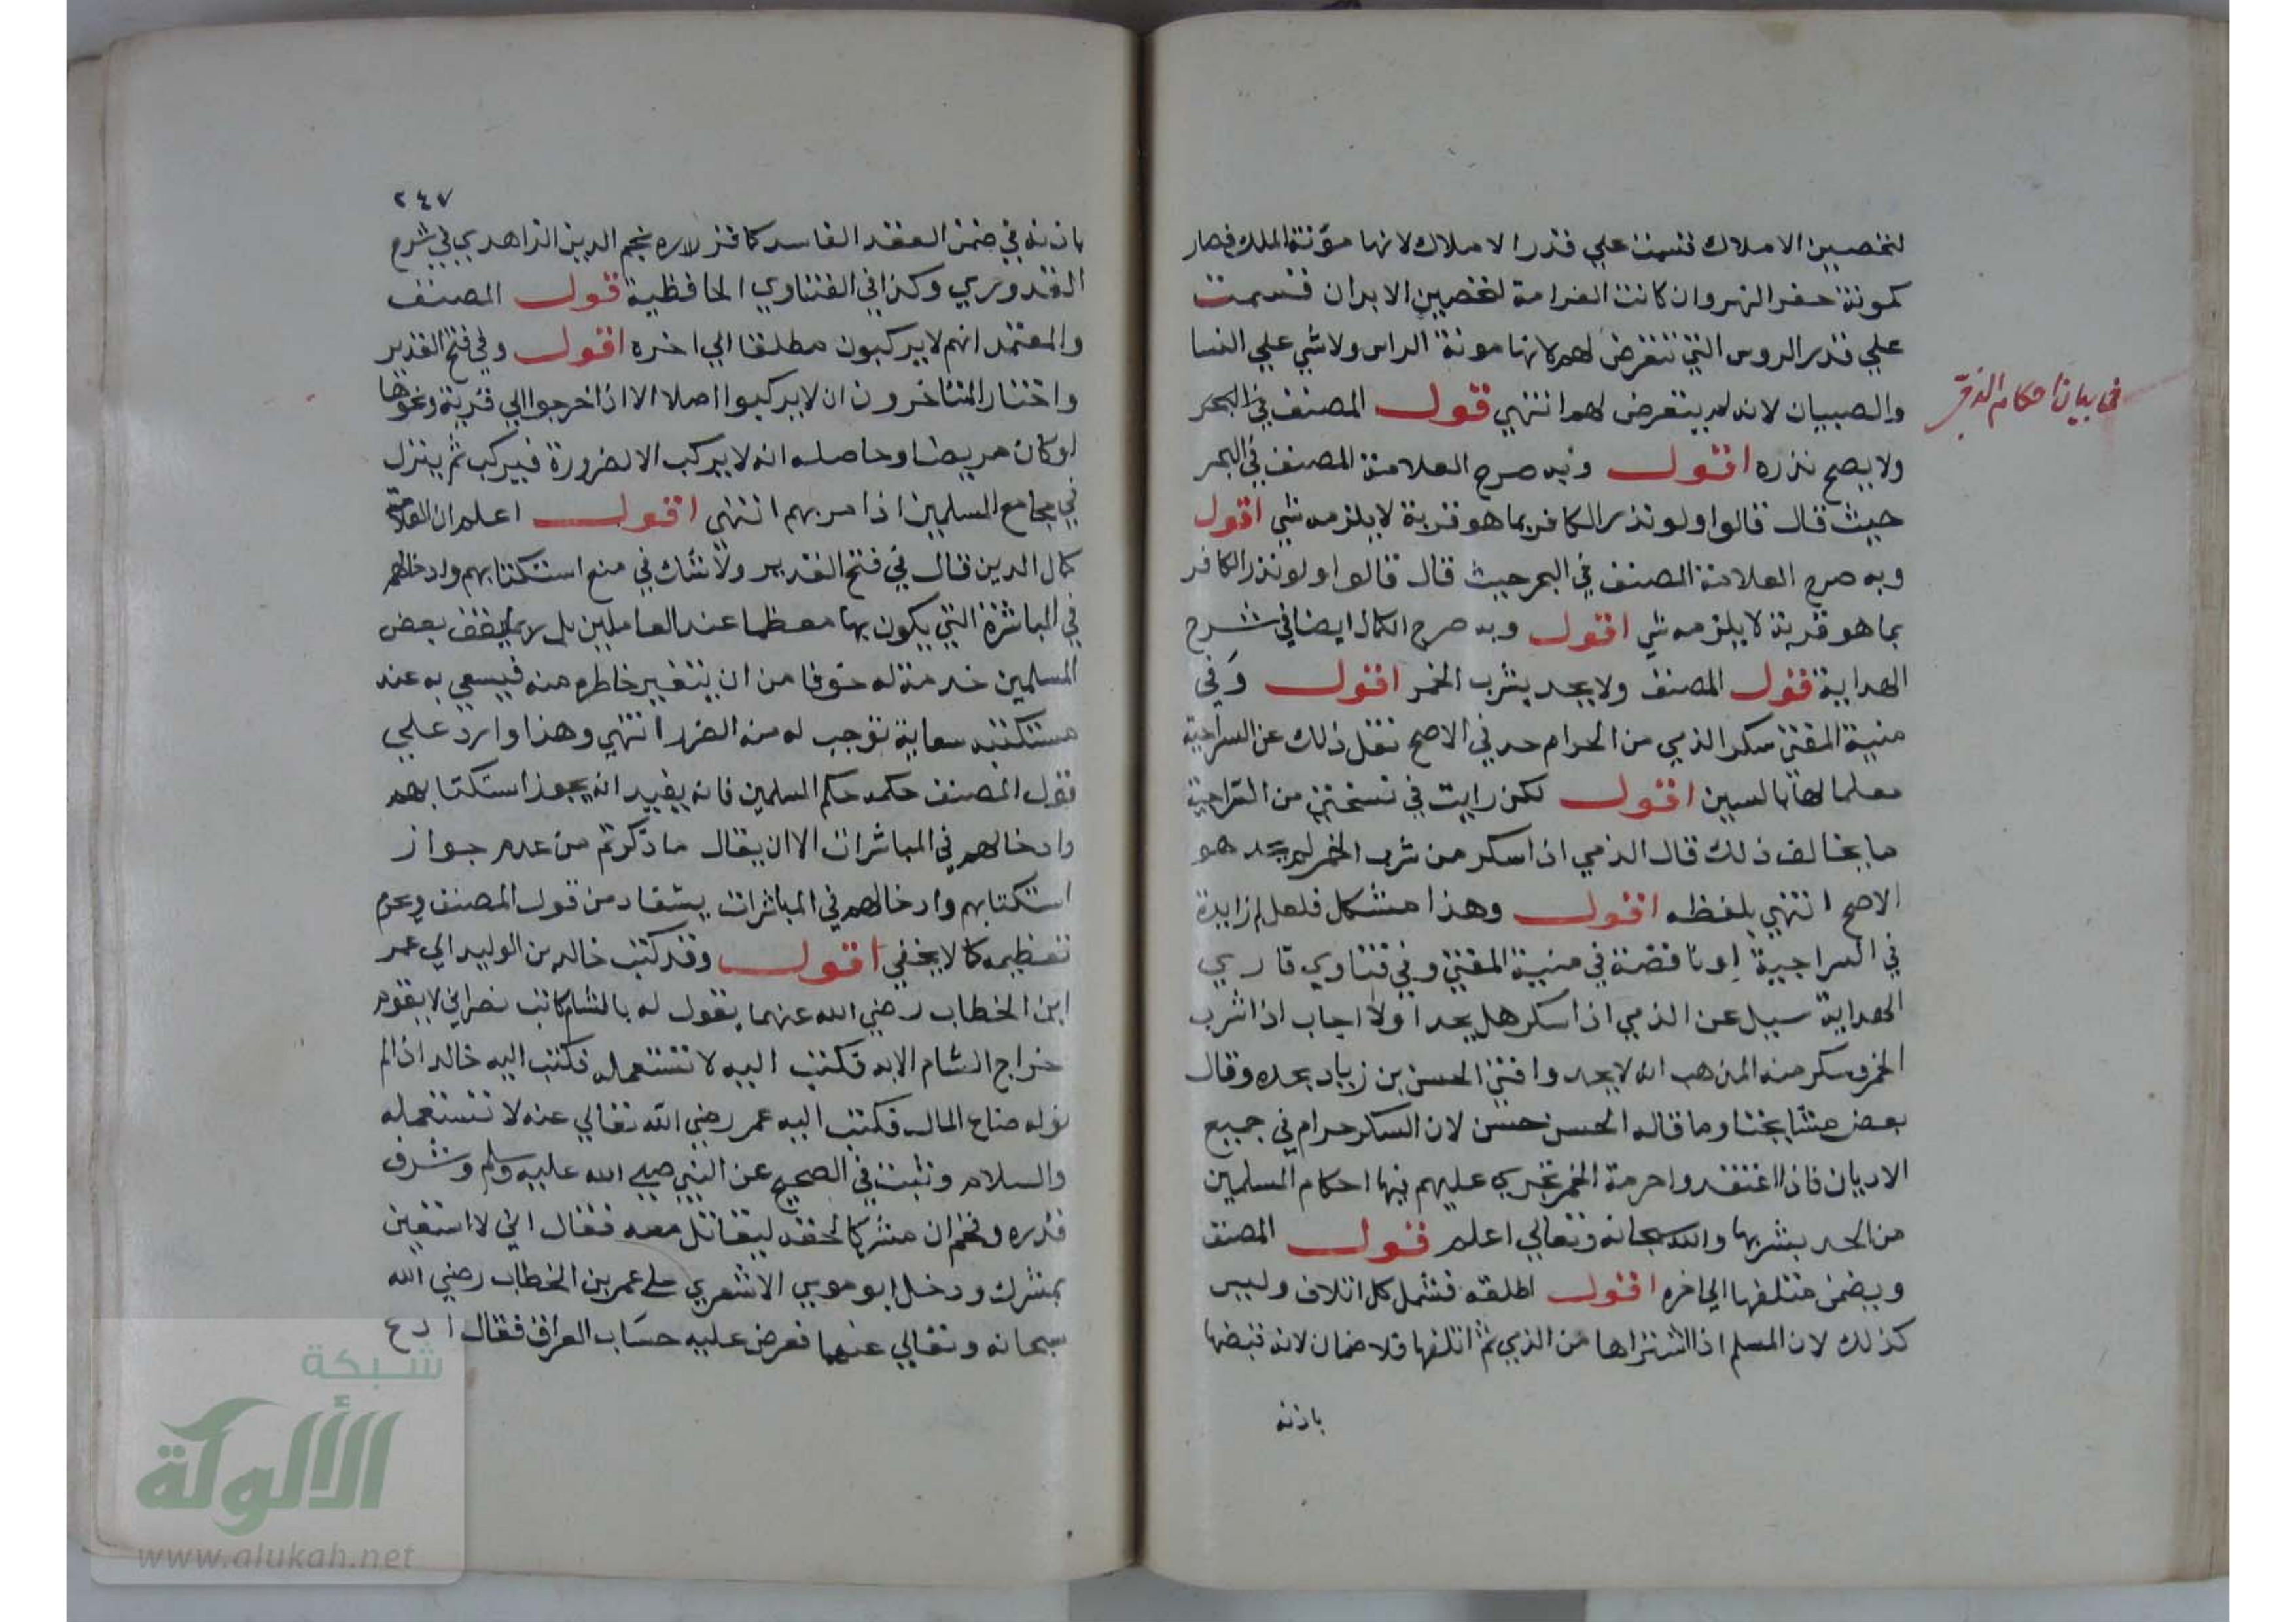 لتحصين الاملاك قسمت علي قدر الاملاك لانها مؤنة الملك فصار
كمونة حفر النهر وان كانت الغرامة لتحصين الابدان قسمت
علي قدر الروس التي تتعرض لهم لانها مونة الراس ولا شي علي النسا
والصبيان لانه لم يتعرض لهم انتهي قول المصنف في البحر
ولا يصح نذره اقول وبه صرح العلامة المصنف في البحر
حيث قال قالوا ولو نذر الكافر بما هو قربة لا يلزمه شي اقول
وبه صرح العلامة المصنف في البحر حيث قال قالوا ولو نذر الكافر
بما هو قربة لا يلزمه شي اقول وبه صرح الكمال ايضا في شرح
الهداية قول المصنف ولا يحد بشرب الخمر اقول وفي
منية المفتي سكر الذمي من الحرام حد في الاصح نقل ذلك عن السراجية
معلما لها بالسين اقول لكن رايت في نسختي من السراجية
ما يخالف ذلك قال الذمي اذا سكر من شرب الخمر لم يحد هو
الاصح انتهي بلفظه اقول وهذا مشكل فلعل لم زايدة
في السراجية او ناقصة في منية المفتي وفي فتاوي قاري
الهداية سيل عن الذمي اذا سكر هل يحد اولا اجاب اذا شرب
الخمر وسكر منه المذهب انه لا يحد وافتي الحسن بن زياد بحده وقال
بعض مشايخنا وما قاله الحسن حسن لان السكر حرام في جميع
الاديان فاذا اعتقدوا حرمة الخمر تجري عليهم فيها احكام المسلمين
من الحد بشربها والله سبحانه وتعالي اعلم قول المصنف
ويضمن متلفها الي اخره اقول اطلقه فشمل كل اتلاف وليس
كذلك لان المسلم اذا اشتراها من الذمي ثم اتلفها فلا ضمان لانه قبضها
باذنه
في بيان احكام الذمي
٢٤٧
باذنه في ضمن العقد الفاسد كما قرره نجم الدين الزاهدي في شرح
القدوري وكذا في الفتاوي الحافظية قول المصنف
والمعتمد انهم لا يركبون مطلقا الي اخره اقول وفي فتح القدير
واختار المتاخرون ان لا يركبوا اصلا الا اذا خرجوا الي قرية ونحوها
او كان مريضا وحاصله انه لا يركب الا لضرورة فيركب ثم ينزل
في مجامع المسلمين اذا مر بهم انتهي اقول اعلم ان العلامة
كمال الدين قال في فتح القدير ولا شك في منع استكتابهم وادخالهم
في المباشرة التي يكون بها معظما عند العاملين بل ربما يقف بعض
المسلمين خدمة له خوفا من ان يتغير خاطره منه فيسعي به عند
مستكتبه سعاية توجب له منه الضرر انتهي وهذا وارد علي
قول المصنف حكمه حكم المسلمين فانه يفيد انه يجوز استكتابهم
وادخالهم في المباشرات الا ان يقال ما ذكرتم من عدم جواز
استكتابهم وادخالهم في المباشرات يستفاد من قول المصنف ويحرم
تعظيمه كما لا يخفي اقول وقد كتب خالد بن الوليد الي عمر
ابن الخطاب رضي الله عنهما يقول له بالشام كاتب نصراني لا يقوم
خراج الشام الا به فكتب اليه لا تستعمله فكتب اليه خالد اذا لم
نوله ضاع المال فكتب اليه عمر رضي الله تعالي عنه لا تستعمله
والسلام وثبت في الصحيح عن النبي صلي الله عليه وسلم وشرف
قدره وفخم ان مشركا لحقه ليقاتل معه فقال اني لا استعين
بمشرك ودخل ابو موسي الاشعري علي عمر بن الخطاب رضي الله
سبحانه وتعالي عنهما فعرض عليه حساب العراق فقال ادع
شبكة
الألوكة
www.alukah.net